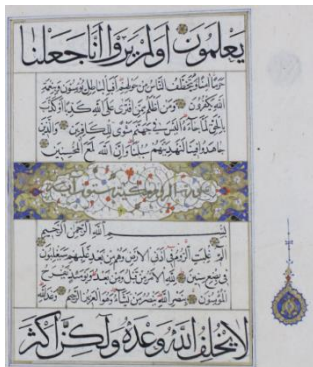 يعلمون اولم يروا انا جعلنا
حرما آمنا ويتخطف الناس من حولهم افبالباطل يؤمنون وبنعمة
الله يكفرون ومن اظلم ممن افترى على الله كذبا او كذب
بالحق لما جاءه اليس في جهنم مثوى للكافرين والذين
جاهدوا فينا لنهدينهم سبلنا وان الله لمع المحسنين
سورة الروم مكية ستون آية
بسم الله الرحمن الرحيم
الم غلبت الروم في ادنى الارض وهم من بعد غلبهم سيغلبون
في بضع سنين لله الامر من قبل ومن بعد ويومئذ يفرح
المؤمنون بنصر الله ينصر من يشاء وهو العزيز الرحيم وعد الله
لا يخلف الله وعده ولكن اكثر